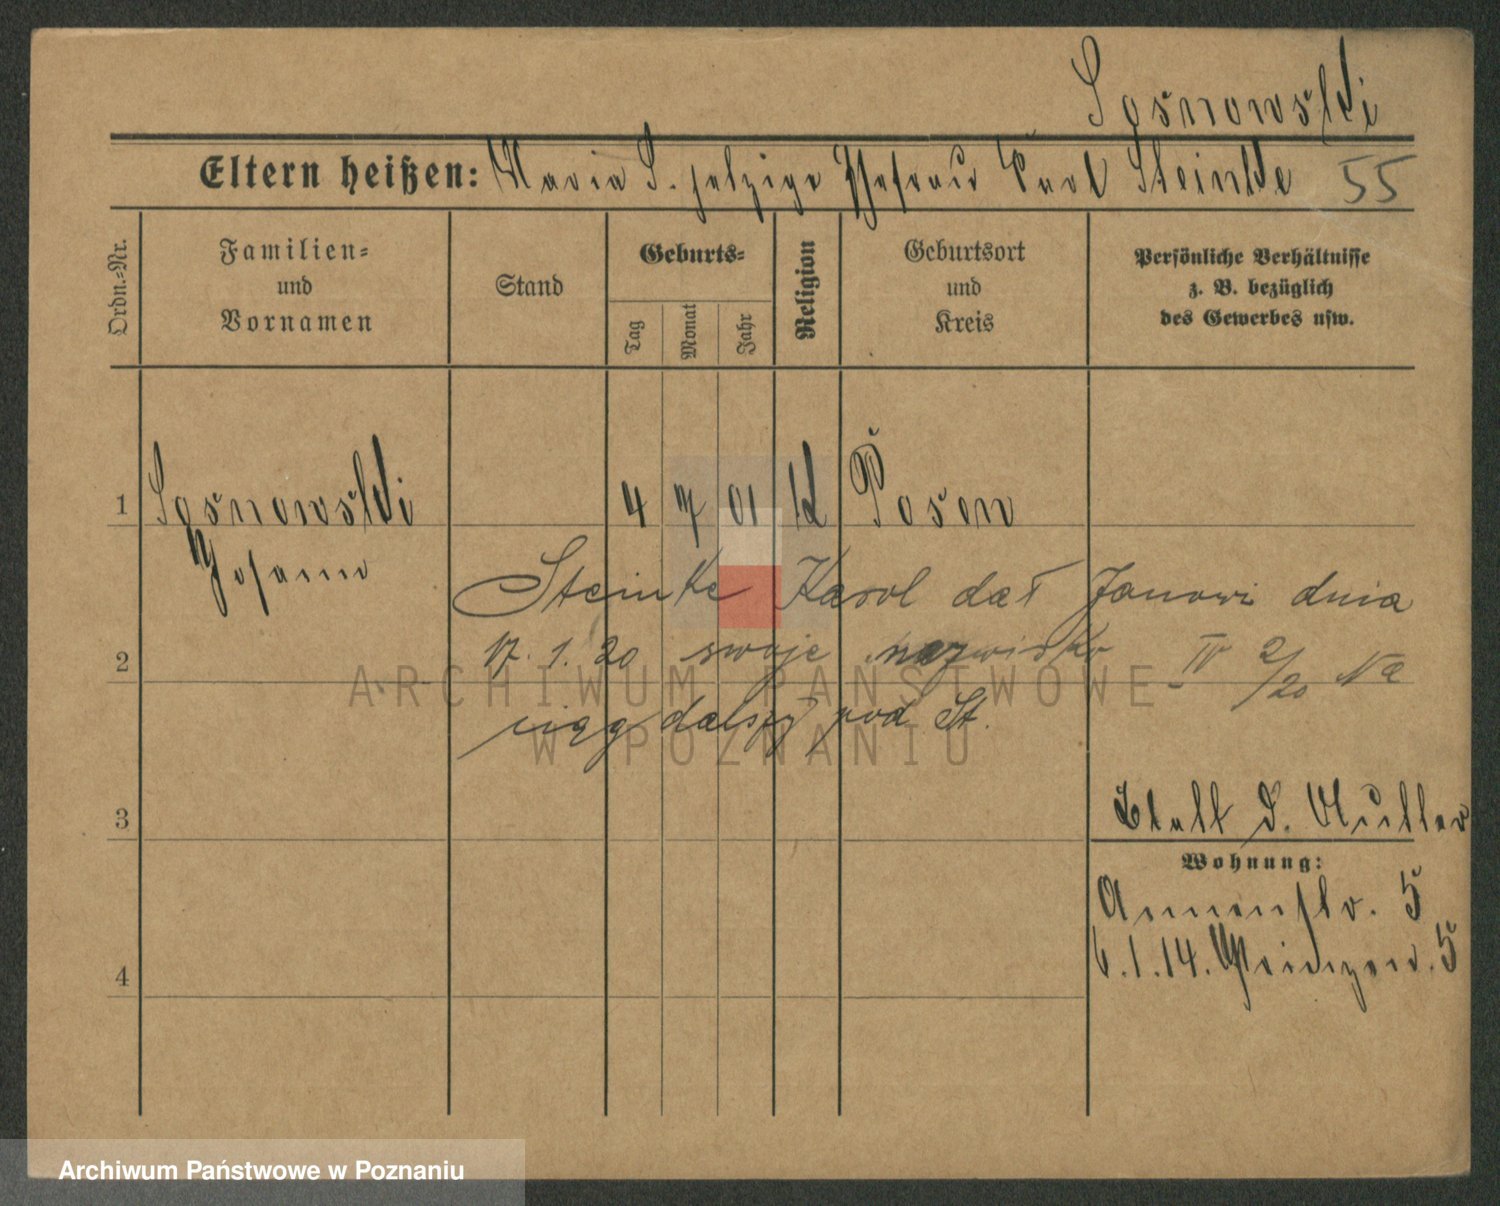 Sosnowski
Eltern heißen: Maria S. jetzige Ehefrau Karl Steinke 55
Ordn.-Nr.
Familien-
und
Vornamen
Stand
Geburts-
Tag
Monat
Jahr
Religion
Geburtsort
und
Kreis
Persönliche Verhältnisse
z. B. bezüglich
des Gewerbes usw.
1 Sosnowski 4 7 01 K Posen
Johann
Steinke Karol dał Janowi dnia
2 17.1.20 swoje nazwisko IV 2/20 Na
ciąg dalszy pod St.
ARCHIWUM PAŃSTWOWE
W POZNANIU
3 d. Mutter
Wohnung:
Annenstr. 5
4 6.1.14. 5
Archiwum Państwowe w Poznaniu